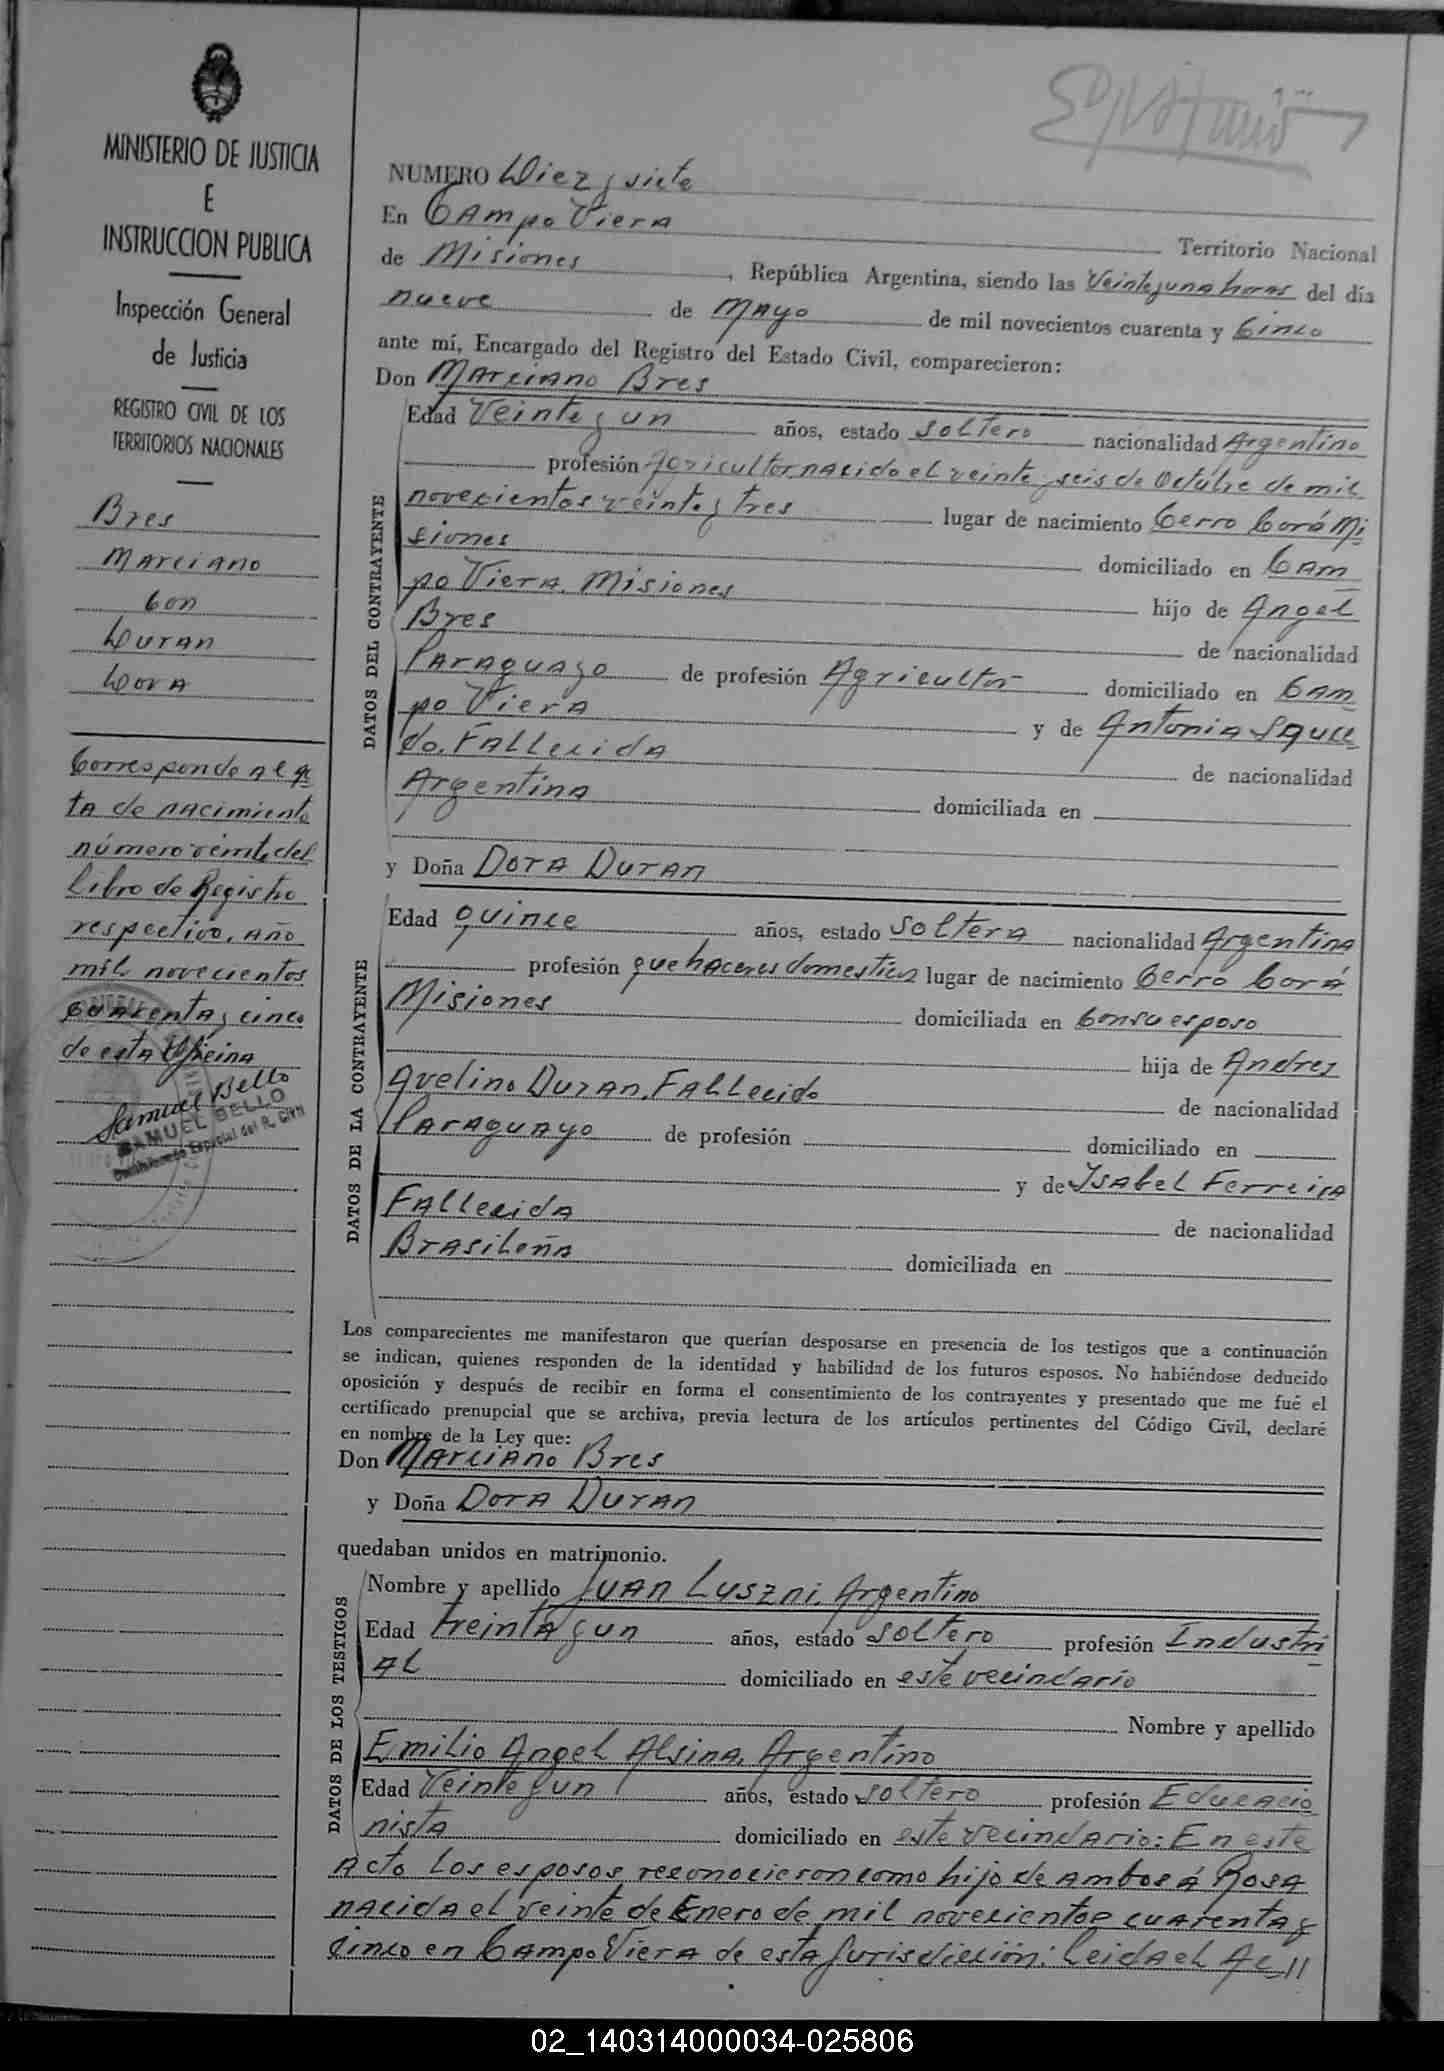 MINISTERIO DE JUSTICIA
E
INSTRUCCION PUBLICA
Inspección General
de Justicia
REGISTRO CIVIL DE LOS
TERRITORIOS NACIONALES
Bres
Marciano
Con
Duran
Dora
Corresponde al ac
ta de nacimiento
número veinte del
Libro de Registro
respectivo, año
mil novecientos
cuarenta y cinco
de esta Oficina
Samuel Bello
SAMUEL BELLO
NUMERO Diez y siete
En Campo Viera Territorio Nacional
de Misiones, República Argentina, siendo las Veinte y una horas del día
nueve de Mayo de mil novecientos cuarenta y Cinco
ante mí, Encargado del Registro del Estado Civil, comparecieron:
Don Marciano Bres
DATOS DEL CONTRAYENTE
Edad Veinte y un años, estado soltero nacionalidad Argentino
profesión Agricultor, nacido el veinte y seis de Octubre de mil
novecientos veinte y tres lugar de nacimiento Cerro Corá Mi
siones domiciliado en Cam
po Viera. Misiones hijo de Angel
Bres de nacionalidad
Paraguayo de profesión Agricultor domiciliado en Cam
po Viera y de Antonia Sauce
do. Fallecida de nacionalidad
Argentina domiciliada en
y Doña Dora Duran
DATOS DE LA CONTRAYENTE
Edad quince años, estado soltera nacionalidad Argentina
profesión quehaceres domesticos lugar de nacimiento Cerro Corá
Misiones domiciliada en Con su esposo
hija de Andres
Avelino Duran. Fallecido de nacionalidad
Paraguayo de profesión domiciliado en
y de Isabel Ferreira
Fallecida de nacionalidad
Brasileña domiciliada en
Los comparecientes me manifestaron que querían desposarse en presencia de los testigos que a continuación
se indican, quienes responden de la identidad y habilidad de los futuros esposos. No habiéndose deducido
oposición y después de recibir en forma el consentimiento de los contrayentes y presentado que me fué el
certificado prenupcial que se archiva, previa lectura de los artículos pertinentes del Código Civil, declaré
en nombre de la Ley que:
Don Marciano Bres
y Doña Dora Duran
quedaban unidos en matrimonio.
DATOS DE LOS TESTIGOS
Nombre y apellido Juan Luszni. Argentino
Edad treinta y un años, estado soltero profesión Industri
al domiciliado en este vecindario
Nombre y apellido
Emilio Angel Alsina. Argentino
Edad Veinte y un años, estado soltero profesión Educacio
nista domiciliado en este vecindario: En este
acto los esposos reconocieron como hijo de ambos á Rosa
nacida el veinte de Enero de mil novecientos cuarenta y
cinco en Campo Viera de esta jurisdicción: Leida el Ac //
02_140314000034-025806